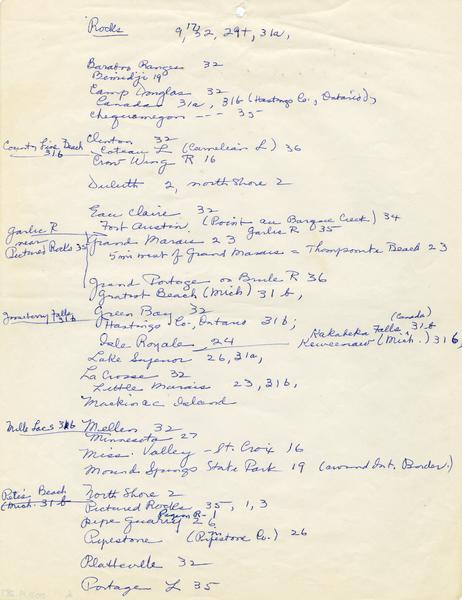 Rocks 9, 17, 32, 29+, 31a,
Baraboo Ranges 32
Bemidji 19
Camp Douglas 32
Canada 31a, 31b (Hastings Co., Ontario),
Chequamegon --- 35
County Line Beach 31b
Clinton 32
Coteau L (Carnelian L) 36
Crow Wing R 16
Duluth 2, north Shore 2
Eau Claire 32
Fort Austin (Point au Barque Creek) 34
Garlic R 35
Garlic R near Pictured Rocks 35
Grand Marais 23
5 mi west of Grand Marais = Thompsonite Beach 23
Grand Portage on Brule R 36
Gratiot Beach (Mich) 31b,
Gooseberry Falls 31b
Green Bay 32
Hastings Co., Ontario 31b;
(Canada)
Kakabeka Falls, 31b
Isle Royale, 24
Keweenaw (Mich.) 31b,
Lake Superior 26, 31a,
La Crosse 32
Little Marais 23, 31b,
Mackinac Island
Mille Lacs 31b
Mellen 32
Minnesota 27
Miss. Valley - St. Croix 16
Mound Springs State Park 19 (around Int. Border.)
Pete's Beach (Mich. 31b
North Shore 2
Pictured Rocks 35, 1, 3
Pigeon R - 1
Pipe Quarry 26
Pipestone (Pipestone Co.) 26
Platteville 32
Portage L 35